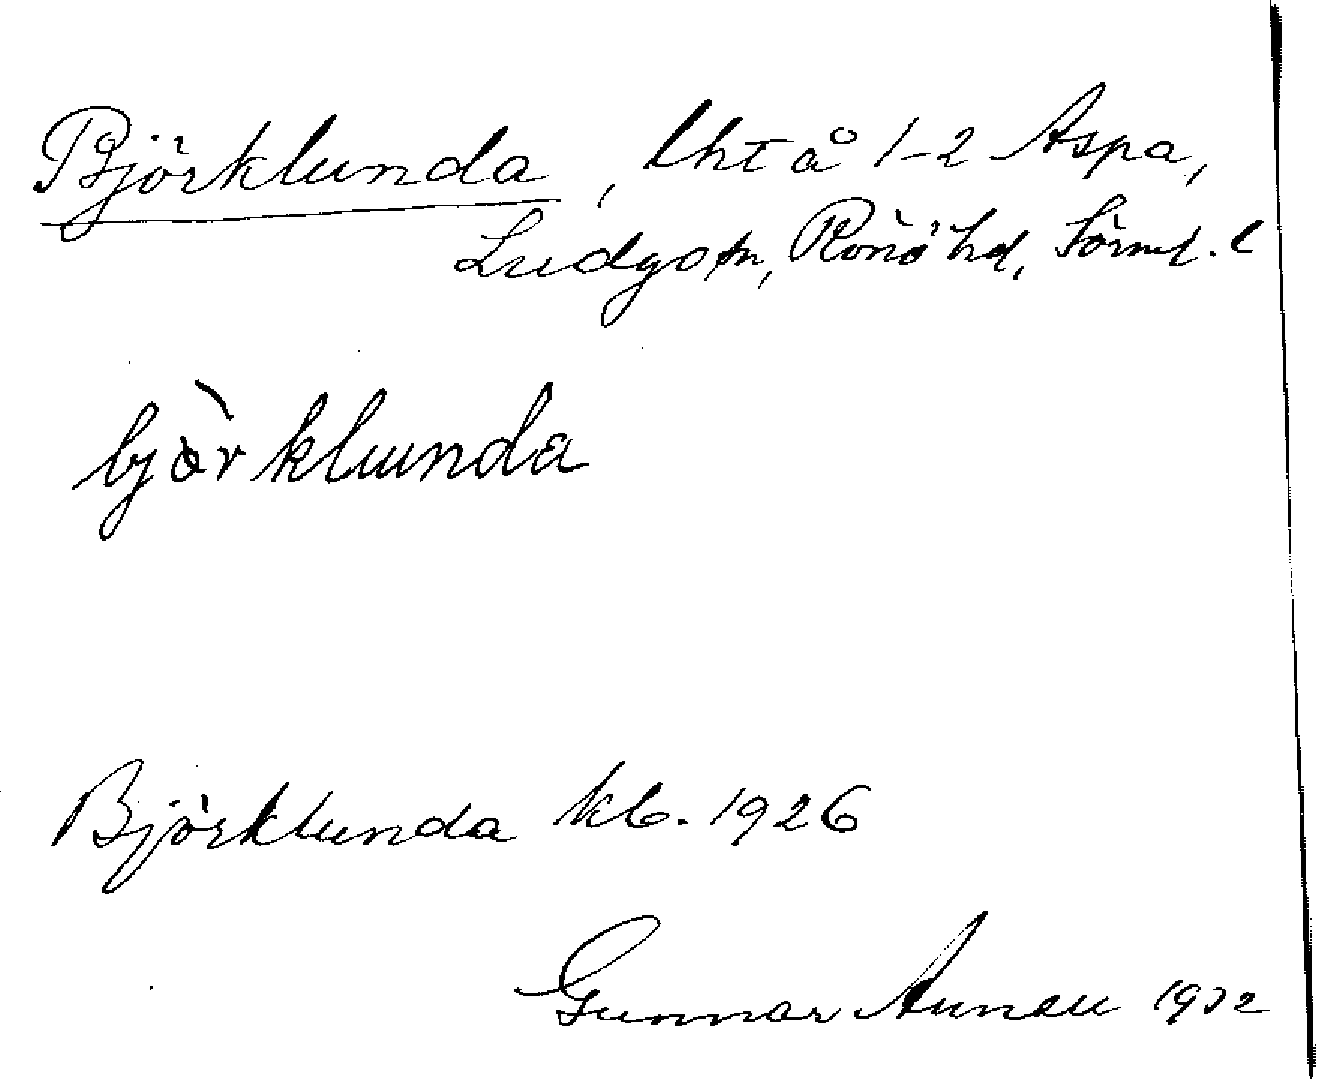 Björklunda, lht å 1-2 Aspa,
Ludgo sn, Rönö hd, Sörml. l
bjò̈rklunda
Björklunda kb. 1926
Gunnar 1932